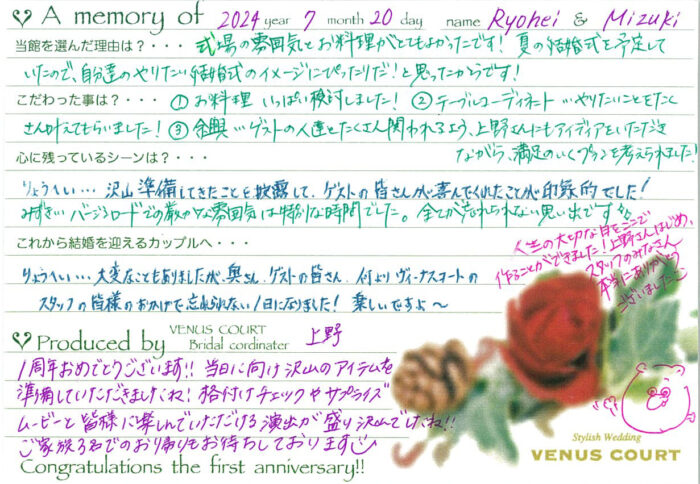 A memory of 2024 year 7 month 20 day name Ryohei & Mizuki
当館を選んだ理由は?・・・ 式場の雰囲気とお料理がとてもよかったです! 夏の結婚式を予定して
いたので、自分達のやりたい結婚式のイメージにぴったりだ!と思ったからです!
こだわった事は?・・・ ①お料理 いっぱい検討しました! ②テーブルコーディネート…やりたいことをたく
さん叶えてもらいました! ③余興…ゲストの人達とたくさん関われるよう、上野さんにもアイディアをいただき
ながら、満足のいくプランを考えられました!
心に残っているシーンは?・・・
りょうへい… 沢山準備してきたことを披露して、ゲストの皆さんが喜んでくれたことが印象的でした!
みずき… バージンロードでの厳かな雰囲気は特別な時間でした。全てが忘れられない思い出です
これから結婚を迎えるカップルへ・・・
りょうへい… 大変なこともありましたが、奥さん、ゲストの皆さん、何よりヴィーナスコートの
スタッフの皆様のおかげで忘れられない1日になりました! 楽しいですよ~
人生の大切な日をここで
作ることができました!上野さんはじめ、
スタッフのみなさん
本当にありがとう
ございました
Produced by VENUS COURT
Bridal cordinater 上野
1周年おめでとうございます!! 当日に向け沢山のアイテムを
準備していただきましたね! 格付けチェックやサプライズ
ムービーと皆様に楽しんでいただける演出が盛り沢山でしたね!!
ご家族3名でのお帰りもお待ちしております
Congratulations the first anniversary!!
Stylish Wedding
VENUS COURT